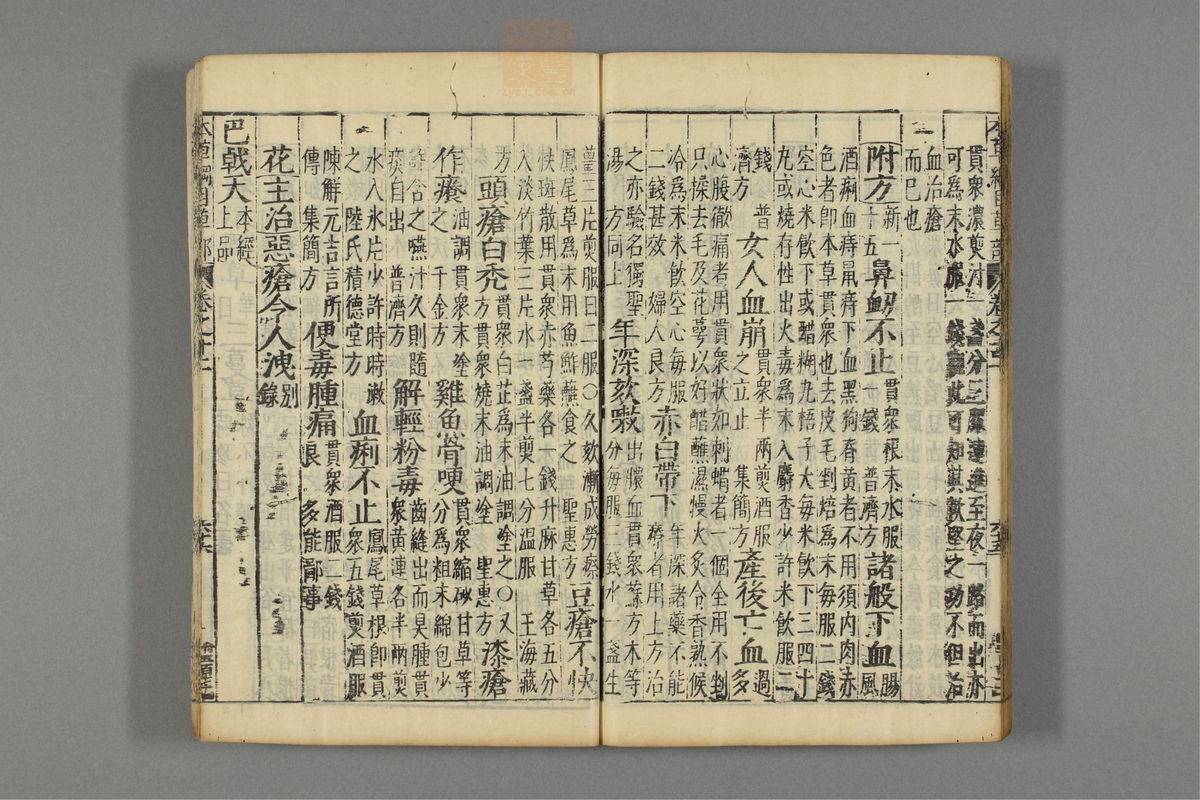 貫衆濃煎汁一盞分三服連進至夜一路而出亦
可爲末水服一錢觀此可知其軟堅之功不但治
血治瘡
而已也
附方新十五鼻衄不止貫衆根末水服一錢普濟方諸般下血腸風
酒痢血痔鼠痔下血黑狗脊黃者不用須內肉赤
色者卽本草貫衆也去皮毛剉焙爲末每服二錢
空心米飲下或醋糊丸梧子大每米飲下三四十
丸或燒存性出火毒爲末入麝香少許米飲服二
錢普濟方女人血崩貫衆半兩煎酒服之立止集簡方產後亡血過多
心腹徹痛者用貫衆狀如刺蝟者一個全用不剉
只揉去毛及花萼以好醋蘸濕慢火炙令香熟候
冷爲末米飲空心每服二錢甚效婦人良方赤白帶下年深諸藥不能療者用上方治
之亦驗名獨聖湯方同上年深欬嗽出膿血貫衆蘇方木等分每服三錢水一盞生
薑三片煎服日二服〇久欬漸成勞瘵
鳳尾草爲末用魚鮓蘸食之聖惠方豆瘡不快
快斑散用貫衆赤芍藥各一錢升麻甘草各五分
入淡竹葉三片水一盞半煎七分溫服王海藏
方頭瘡白禿貫衆白芷爲末油調塗之〇又方貫衆燒末油調塗聖惠方漆瘡
作癢油調貫衆末塗之千金方雞魚骨哽貫衆縮砂甘草等分爲粗末綿包少
許含之嚥汁久則隨痰自出普濟方解輕粉毒齒縫出血臭腫貫衆黃連各半兩煎
水入冰片少許時時漱之陸氏積德堂方血痢不止鳳尾草根卽貫衆五錢煎酒服
陳解元吉言所傳集簡方便毒腫痛貫衆酒服二錢良多能鄙事
花主治惡瘡令人洩別錄
巴戟天本經上品